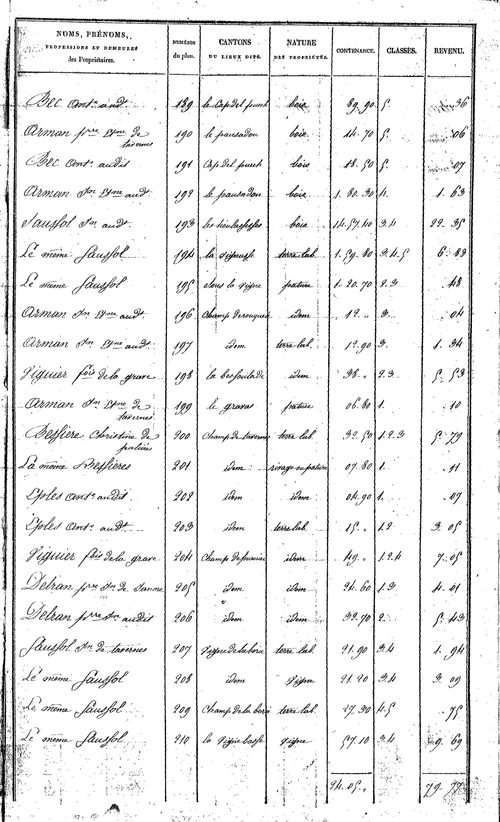 NOMS, PRÉNOMS, PROFESSIONS ET DEMEURES des Propriétaires. NUMÉRO du plan. CANTONS OU LIEUX DITS. NATURE DES PROPRIÉTÉS. CONTENANCE. CLASSES. REVENU.
Bec ant.e audt 189 le Cap del puech bois 89.90 5. 36
Arman pre Ame de tavernes 190 le pausadou bois 14.70 5. 06
Bec ant.e audit 191 Cap del puech bois 18.50 5. 07
Arman Jn Ame audt 192 le pausadou bois 1.80.30 4. 1.63
Saussol Jn audt 193 bois 14.57.40 3.4 22.35
Le même Saussol 194 la terre lab. 1.59.80 3.4.5 6.
Le même Saussol 195 sous la vigne pature 1.20.70 2.3 48
Arman Jn Ame audt 196 Champ idem 12.„ 3. 04
Arman Jn Ame audt 197 idem terre lab. 12.90 3. 1.34
Viguier fois de la grave 198 idem 38.„ 2.3 5.53
Arman Jn Ame de tavernes 199 le gravas pature 06.80 1. 10
Bessiere Christine de 200 Champ de tavernes terre lab. 32.50 1.2.3 5.79
La même Bessieres 201 idem rivage ou pature 07.80 1. 11
Eples ant.e audit 202 idem idem 04.90 1. 07
Eples ant.e audt 203 idem terre lab. 15.„ 1.2 3.05
Viguier fois de la grave 204 Champ idem 49.„ 1.2.4 7.05
Delran pre Jn de 205 idem idem 24.60 1.3 4.01
Delran pierre Jn audit 206 idem idem 32.70 2. 5.43
Saussol Jn de tavernes 207 vigne de la borie terre lab. 21.90 3.4 1.94
Le même Saussol 208 idem vigne 21.20 3.4 3.09
Le même Saussol 209 Champ de la borie terre lab. 27.30 4.5 75
Le même Saussol 210 la vigne basse vigne 57.10 3.4 9.69
24.05.„ 79.77